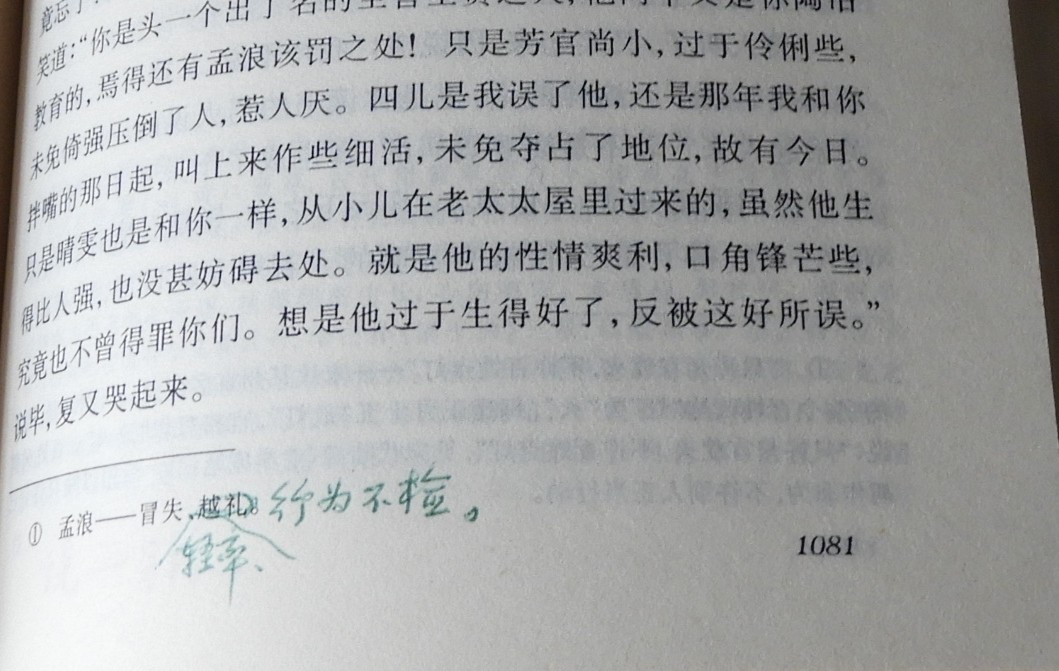 竟忘了
笑道：“你是头一个出了名的至善至贤之人，他两个又是你陶冶
教育的，焉得还有孟浪该罚之处！只是芳官尚小，过于伶俐些，
未免倚强压倒了人，惹人厌。四儿是我误了他，还是那年我和你
拌嘴的那日起，叫上来作些细活，未免夺占了地位，故有今日。
只是晴雯也是和你一样，从小儿在老太太屋里过来的，虽然他生
得比人强，也没甚妨碍去处。就是他的性情爽利，口角锋芒些，
究竟也不曾得罪你们。想是他过于生得好了，反被这好所误。”
说毕，复又哭起来。
① 孟浪——冒失、越礼。行为不检。
轻率、
1081